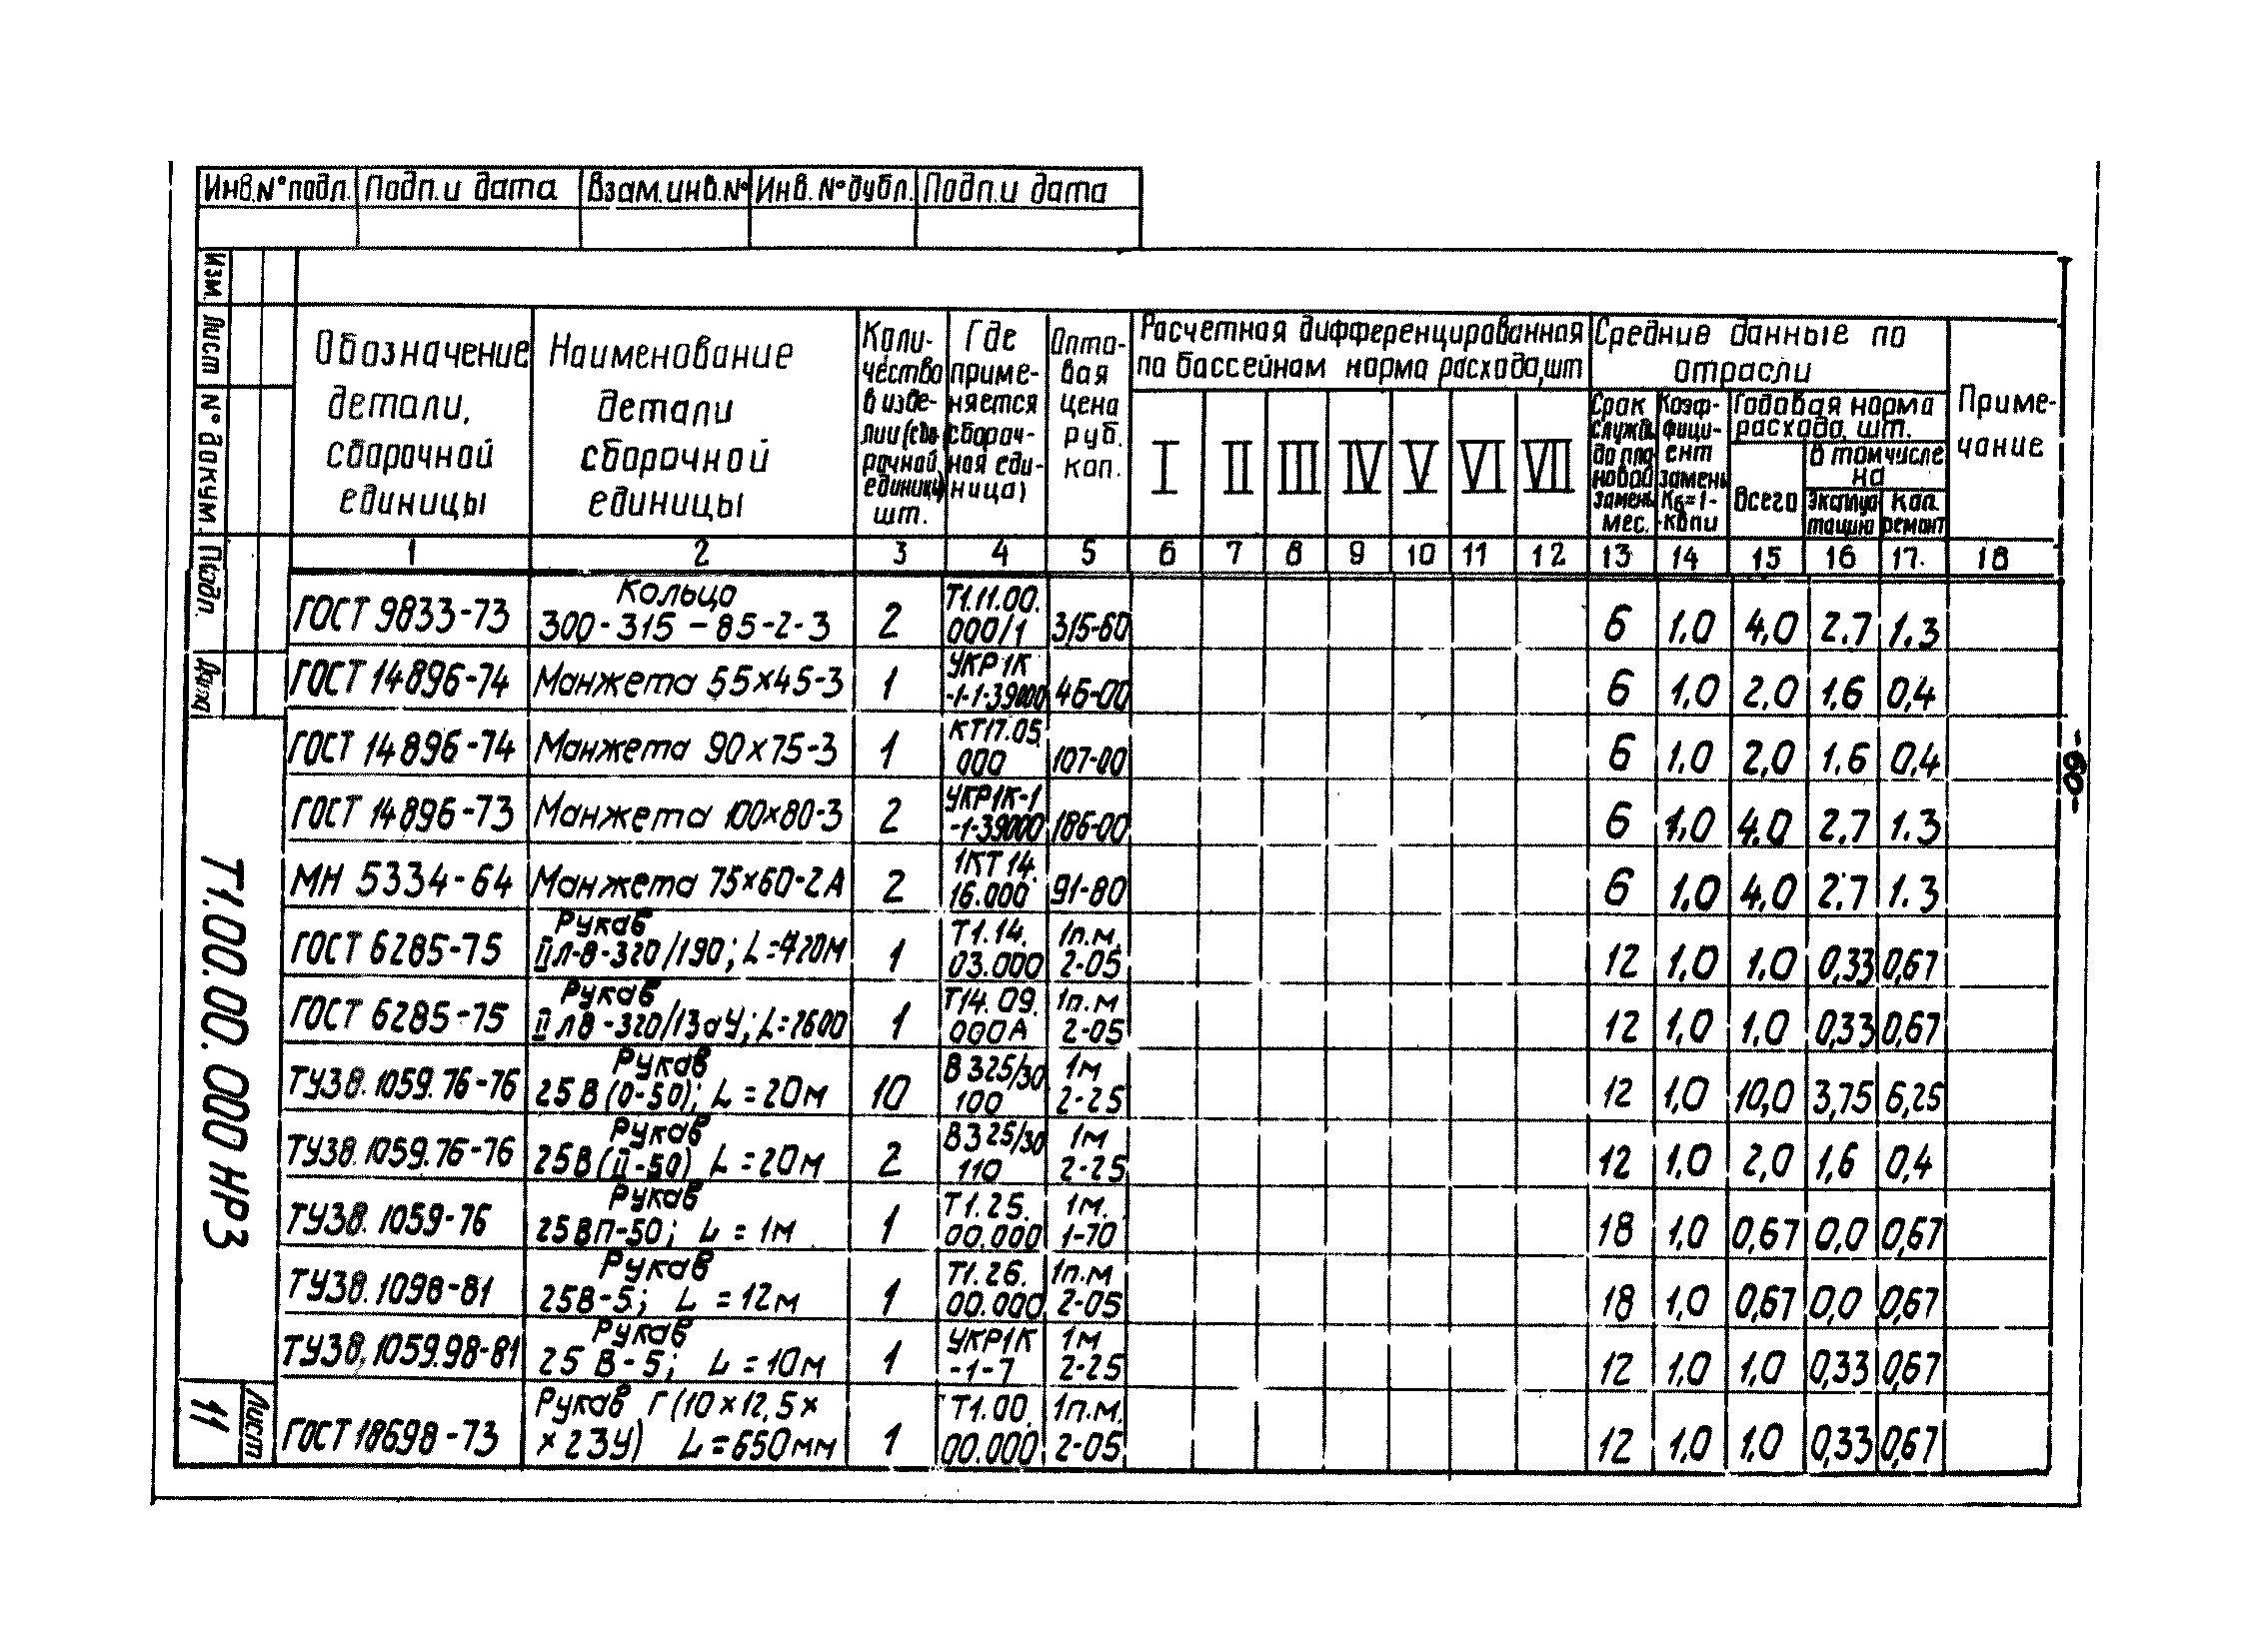 Инв.№ подл. Подп.и дата Взам.инв.№ Инв.№ дубл. Подп.и дата
Изм. Лист № докум. Подп. Дата
Обозначение детали, сборочной единицы
Наименование детали сборочной единицы
Коли-
чество
в изде-
лии (сбо-
рочной
единицы)
шт.
Где
приме-
няется
(сбороч-
ная еди-
ница)
Опто-
вая
цена
руб.
коп.
Расчетная дифференцированная
по бассейнам норма расхода, шт
I II III IV V VI VII
Средние данные по
отрасли
Срок
службы
до пла-
новой
замены
мес.
Коэф-
фици-
ент
замены
Кв=1-
-Квпи
Годовая норма
расхода, шт.
Всего
в том числе
на
эксплуа-
тацию
Кап.
ремонт
Приме-
чание
1 2 3 4 5 6 7 8 9 10 11 12 13 14 15 16 17. 18
ГОСТ 9833-73 Кольцо 300-315-85-2-3 2 Т1.11.00.000/1 315-60 6 1,0 4,0 2.7 1.3
ГОСТ 14896-74 Манжета 55×45-3 1 УКР1К-1-1-39000 46-00 6 1,0 2,0 1,6 0,4
ГОСТ 14896-74 Манжета 90×75-3 1 КТ17.05.000 107-00 6 1.0 2,0 1.6 0,4
ГОСТ 14896-73 Манжета 100×80-3 2 УКР1К-1-1-39000 186-00 6 1,0 4.0 2.7 1.3
МН 5334-64 Манжета 75×60-2А 2 1КТ14.16.000 91-80 6 1.0 4,0 2.7 1.3
ГОСТ 6285-75 Рукав II Л-8-320/190; L=420м 1 Т1.14.03.000 1п.м. 2-05 12 1,0 1,0 0,33 0,67
ГОСТ 6285-75 Рукав II Л8-320/13аУ; L=2600 1 Т14.09.000А 1п.м 2-05 12 1,0 1,0 0,33 0,67
ТУ38.1059.76-76 Рукав 25В(0-50); L=20м 10 В325/30 100 1м 2-25 12 1,0 10,0 3,75 6,25
ТУ38.1059.76-76 Рукав 25В(II-50) L=20м 2 В325/30 110 1м 2-25 12 1,0 2,0 1,6 0,4
ТУ38.1059-76 Рукав 25ВП-50; L=1м 1 Т1.25.00.000 1м. 1-70 18 1,0 0,67 0,0 0,67
ТУ38.1098-81 Рукав 25В-5; L=12м 1 Т1.26.00.000 1п.м 2-05 18 1,0 0,67 0,0 0,67
ТУ38,1059.98-81 Рукав 25В-5; L=10м 1 УКР1К-1-7 1м 2-25 12 1,0 1,0 0,33 0,67
ГОСТ 18698-73 Рукав Г(10×12,5××23У) L=650мм 1 Т1.00.00.000 1п.м. 2-05 12 1,0 1,0 0,33 0,67
Т1.00.00.000 НР3
Лист
11
-60-